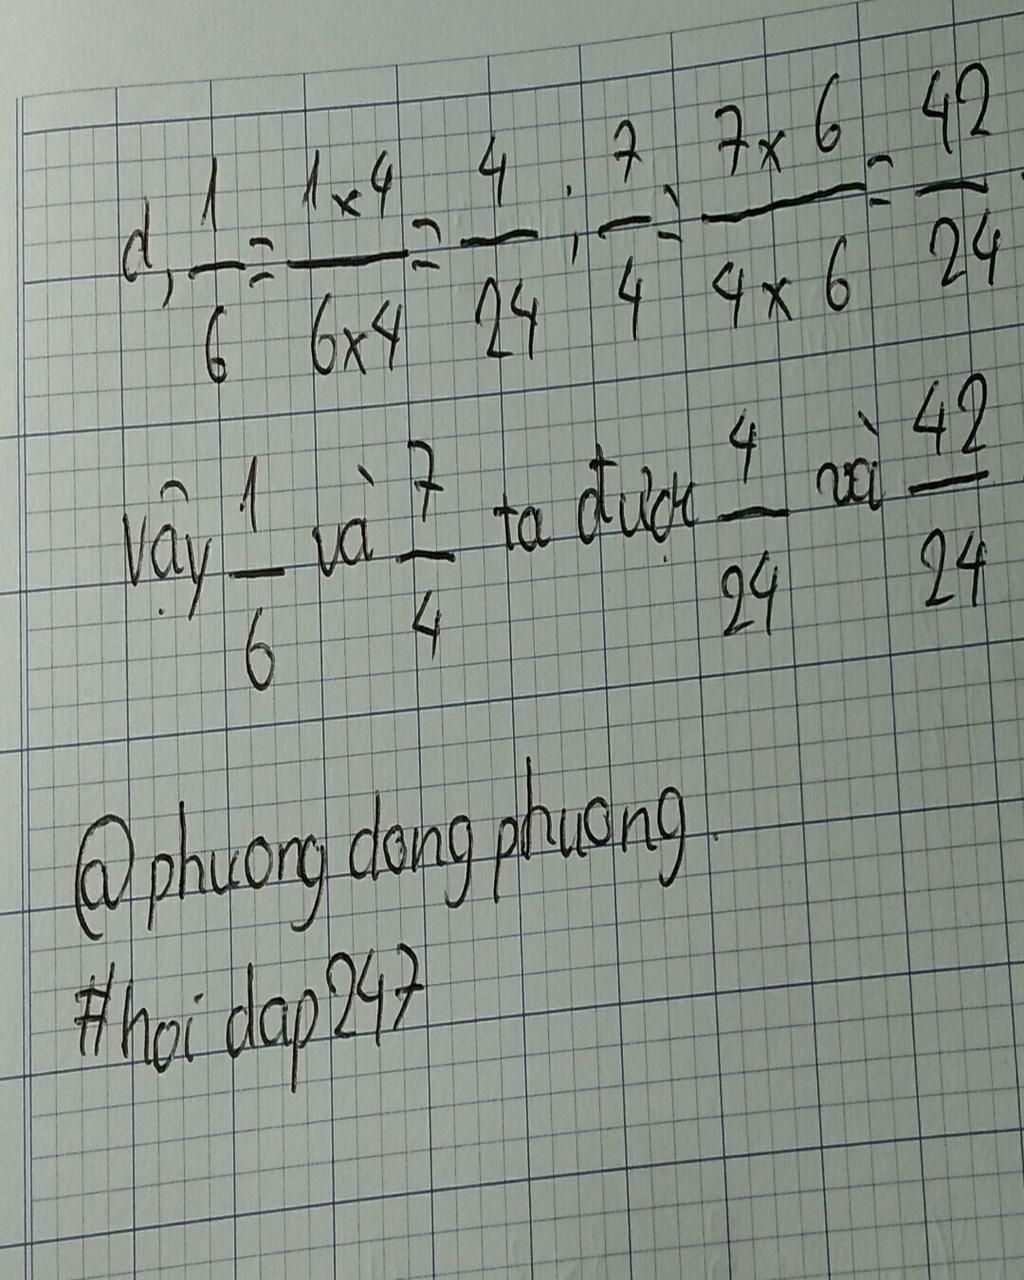 d, 1/6 = 1x4/6x4 = 4/24 ; 7/4 = 7x6/4x6 = 42/24.
Vậy 1/6 và 7/4 ta được 4/24 và 42/24
@phuong dong phuong.
#hoi dap 247